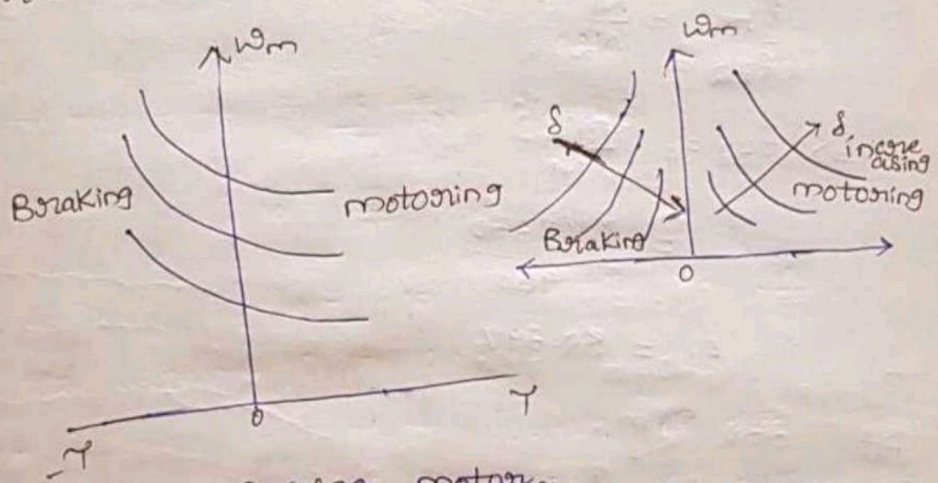 Wm
Braking
motoring
T
0
-T
Wm
δ
δ increasing
motoring
Braking
0
motor